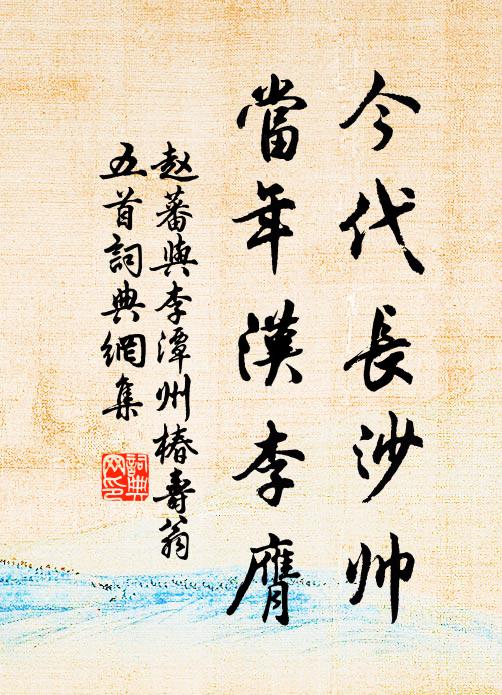 今代長沙帅
當年漢李膺
赵蕃與李潭州椿壽翁
五首詞典網集
詞典网印